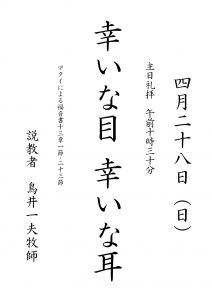 四月二十八日（日）
主日礼拝　午前十時三十分
幸いな目　幸いな耳
マタイによる福音書十三章一節-二十三節
説教者　鳥井一夫牧師